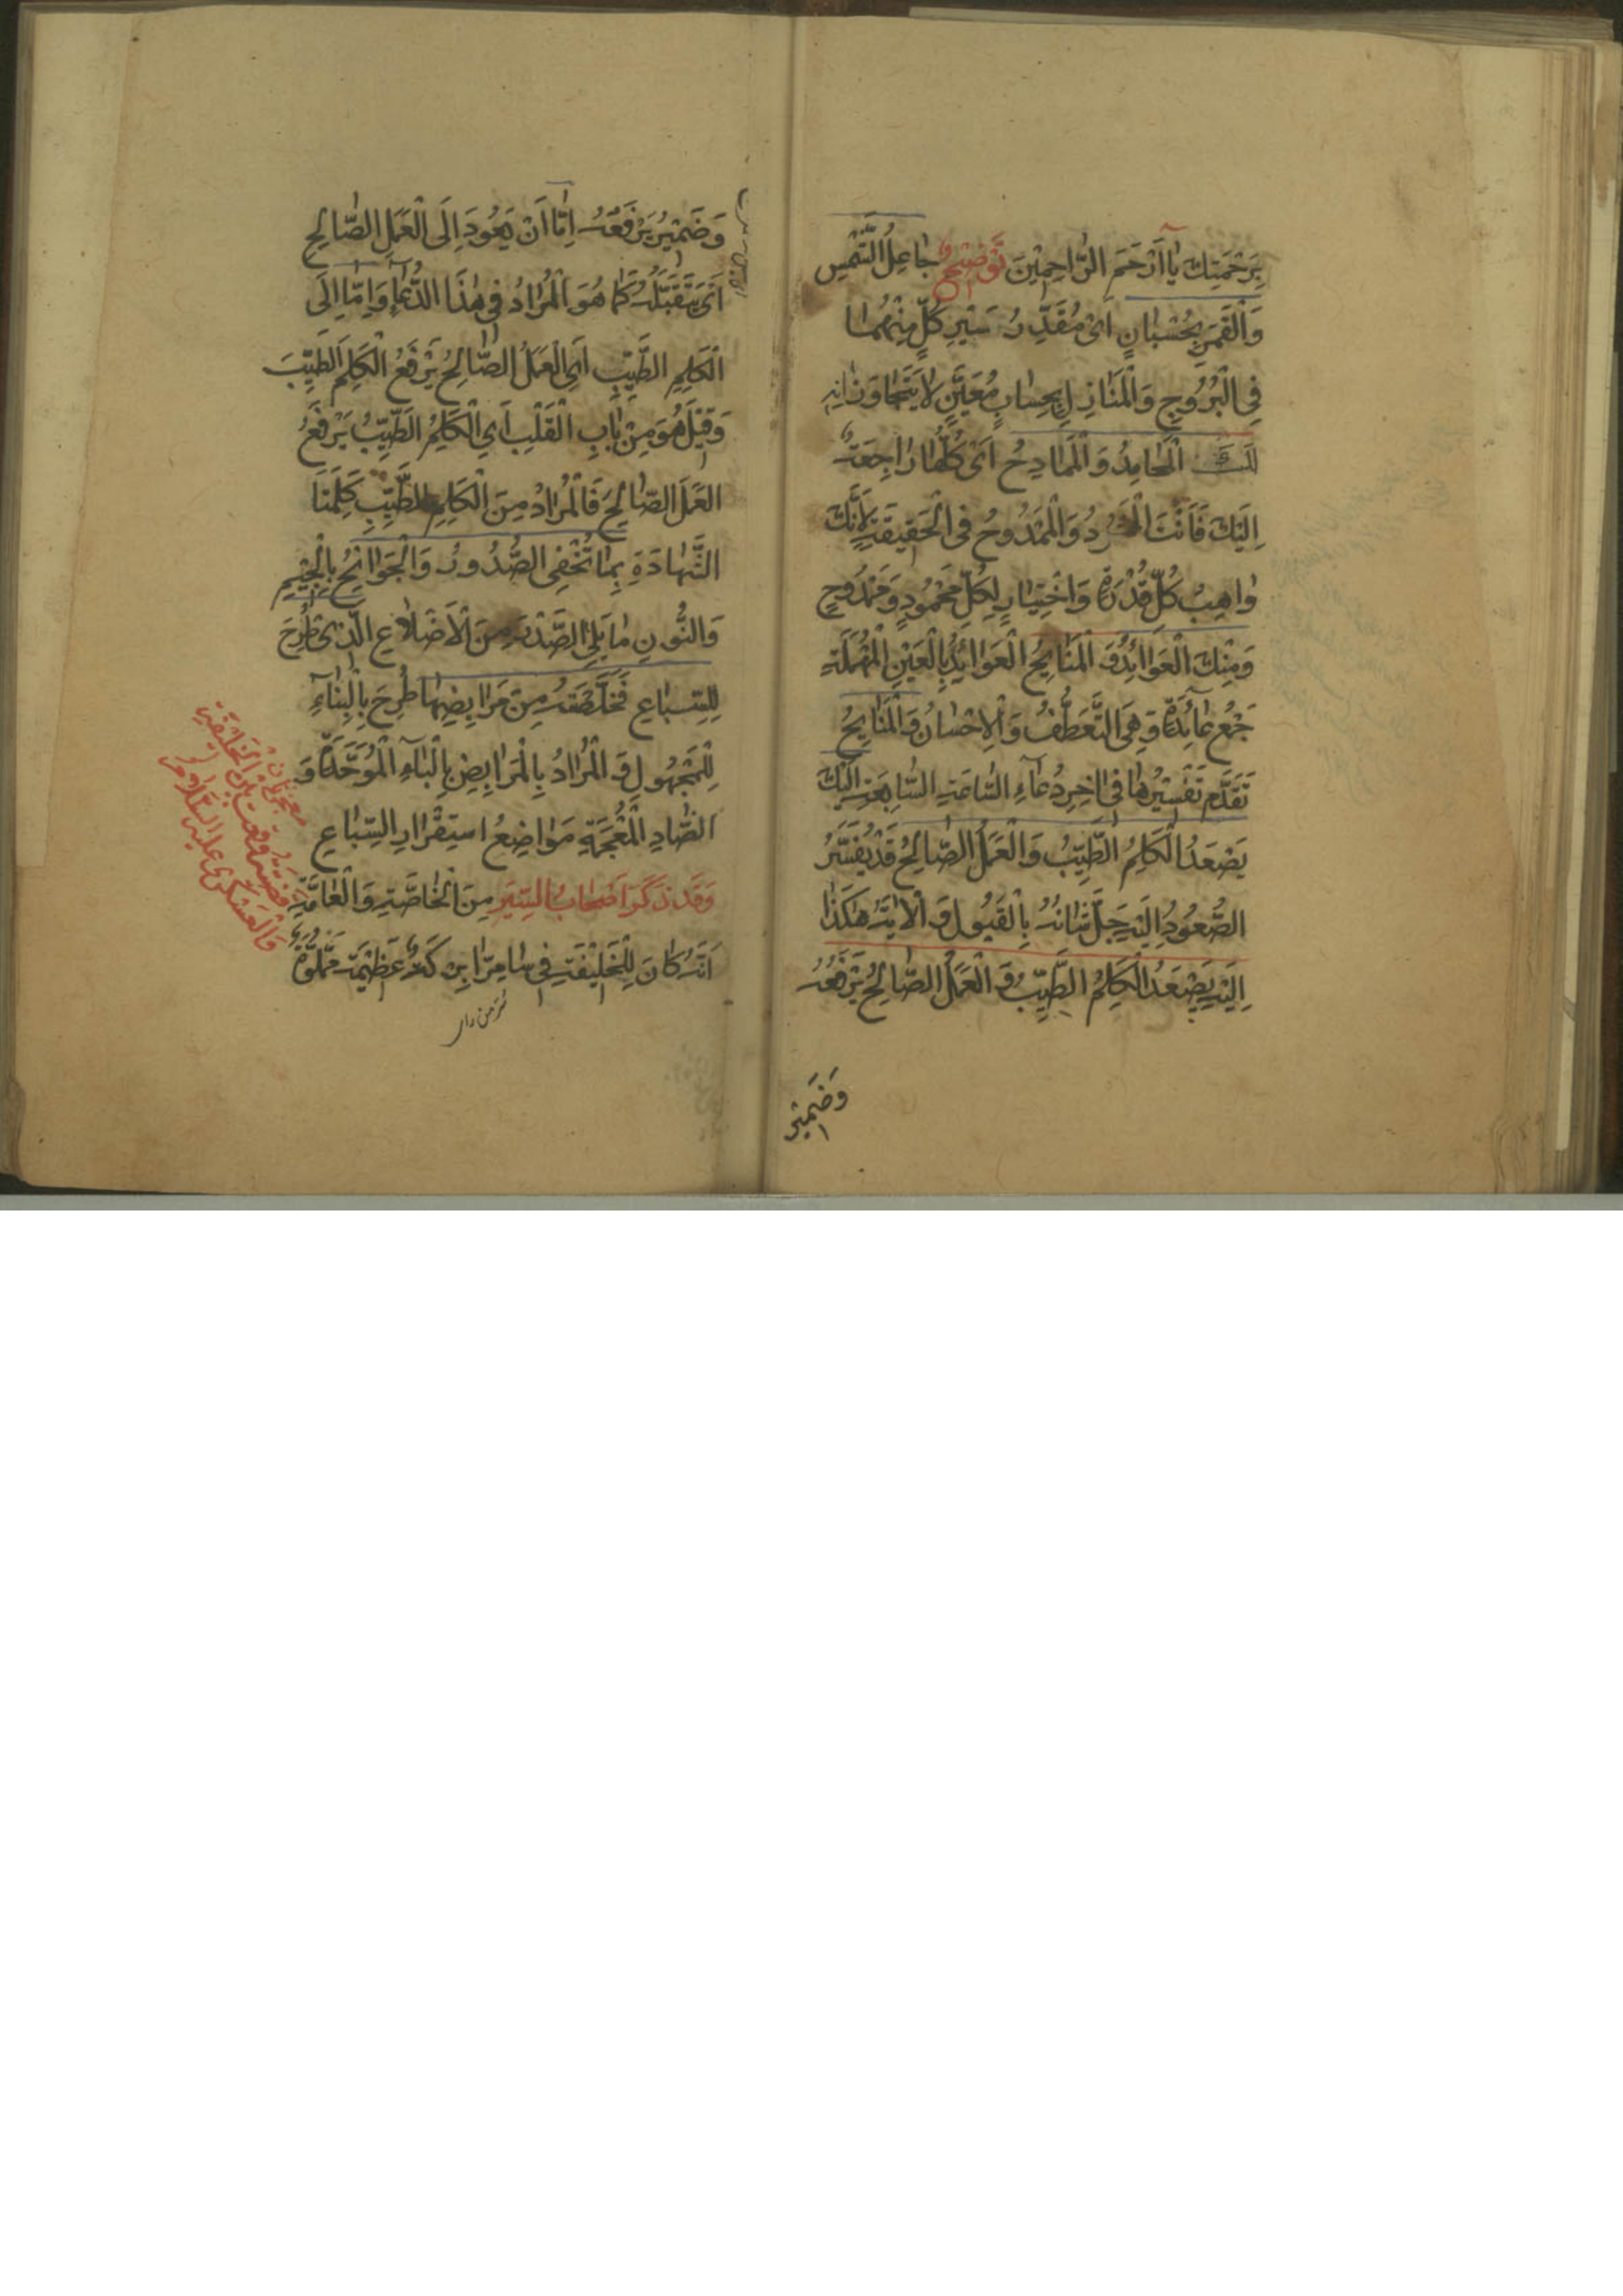 بِرَحْمَتِكَ يَا اَرْحَمَ الرّٰاحِمٖينَ تَوْضيٖحٌ جٰاعِلُ الشَّمْسِ
وَالْقَمَرِ بِحُسْبٰانٍ اىْ مُقَدِّرُ سَيْرِ كُلٍّ مِنْهُمٰا
فِى الْبُرُوجِ وَالْمَنٰازِلِ بِحِسٰابٍ مُعَيَّنٍ لٰا يَتَجٰاوَزٰانِهِ
الْمَحٰامِدُ وَالْمَمٰادِحُ اَىْ كُلُّهٰا رٰاجِعَةٌ
اِلَيْكَ فَاَنْتَ وَالْمَمْدُوحُ فِى الْحَقيٖقَةِ لِاَنَّكَ
وٰاهِبُ كُلِّ قُدْرَةٍ وَاخْتِيٰارٍ لِكُلِّ مَحْمُودٍ وَمَمْدُوحٍ
وَمِنْكَ الْعَوٰائِدُ وَ الْمَنٰايِحُ الْعَوٰائِدُ بِالْعَيْنِ الْمُهْمَلَةِ
جَمْعُ عٰائِدَةٍ وَهِىَ التَّعَطُّفُ وَالْاِحْسٰانُ وَالْمَنٰايِحُ
تَقَدَّمَ تَفْسيٖرُهٰا فٖى اٰخِرِ دُعٰآءِ السّٰاعَةِ السّٰابِعَةِ اِلَيْكَ
يَصْعَدُ الْكَلِمُ الطَّيِّبُ وَالْعَمَلُ الصّٰالِحُ قَدْ يُفَسَّرُ
الصُّعُودُ اِلَيْهِ جَلَّ شٰانُهُ بِالْقَبُولِ وَ الْاٰيَةُ هٰكَذٰا
اِلَيْهِ يَصْعَدُ الْكَلِمُ الطَّيِّبُ وَ الْعَمَلُ الصّٰالِحُ يَرْفَعُهُ
وَضَميٖرُ
وَضَميٖرُ يَرْفَعُهُ اِمّٰا اَنْ يَعُودَ اِلَى الْعَمَلِ الصّٰالِحِ
اَىْ يَتَقَبَّلُهُ كَمٰا هُوَ الْمُرٰادُ فٖى هٰذَا الدُّعٰآءِ وَاِمّٰا اِلَى
الْكَلِمِ الطَّيِّبِ اَىِ الْعَمَلُ الصّٰالِحُ يَرْفَعُ الْكَلِمَ الطَّيِّبَ
وَقيٖلَ هُوَ مِنْ بٰابِ الْقَلْبِ اَىِ الْكَلِمُ الطَّيِّبُ يَرْفَعُ
الْعَمَلَ الصّٰالِحَ فَالْمُرٰادُ مِنَ الْكَلِمِ الطَّيِّبِ كَلِمَتَا
الشَّهٰادَةِ بِمٰا تُخْفِى الصُّدُورُ وَالْجَوٰانِحُ بِالْجيٖمِ
وَالنُّونِ مٰا يَلِى الصَّدْرَ مِنَ الْاَضْلٰاعِ الَّذٖى طُرِحَ
لِلسِّبٰاعِ فَخَلَّصْتَهُ مِنْ مَرٰابِضِهٰا طُرِحَ بِالْبِنٰآءِ
لِلْمَجْهُولِ وَ الْمُرٰادُ بِالْمَرٰابِضِ بِالْبٰآءِ الْمُوَحَّدَةِ وَ
الضّٰادِ الْمُعْجَمَةِ مَوٰاضِعُ اسْتِقْرٰارِ السِّبٰاعِ
وَقَدْ ذَكَرَ اَصْحٰابُ السِّيَرِ مِنَ الْخٰاصَّةِ وَالْعٰامَّةِ
اَنَّهُ كٰانَ لِلْخَليٖفَةِ فٖى سٰامِرّٰا بِرْكَةٌ عَظيٖمَةٌ مَمْلُوَّةٌ
سُرّ من رای
قضيّة وقعت بين الخليفة
والعسكرى عليه السّلام